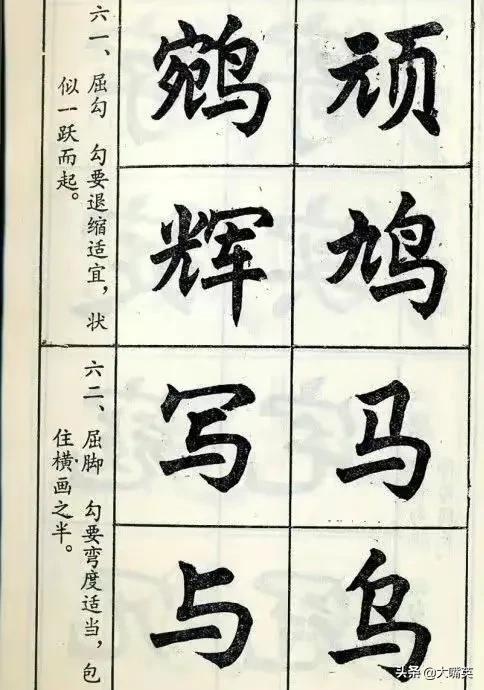 顽鸠
鹓辉
六一、屈勾 勾要退缩适宜，状
似一跃而起。
马乌
写与
六二、屈脚 勾要弯度适当，包
住横画之半。
头条 @大嘴英